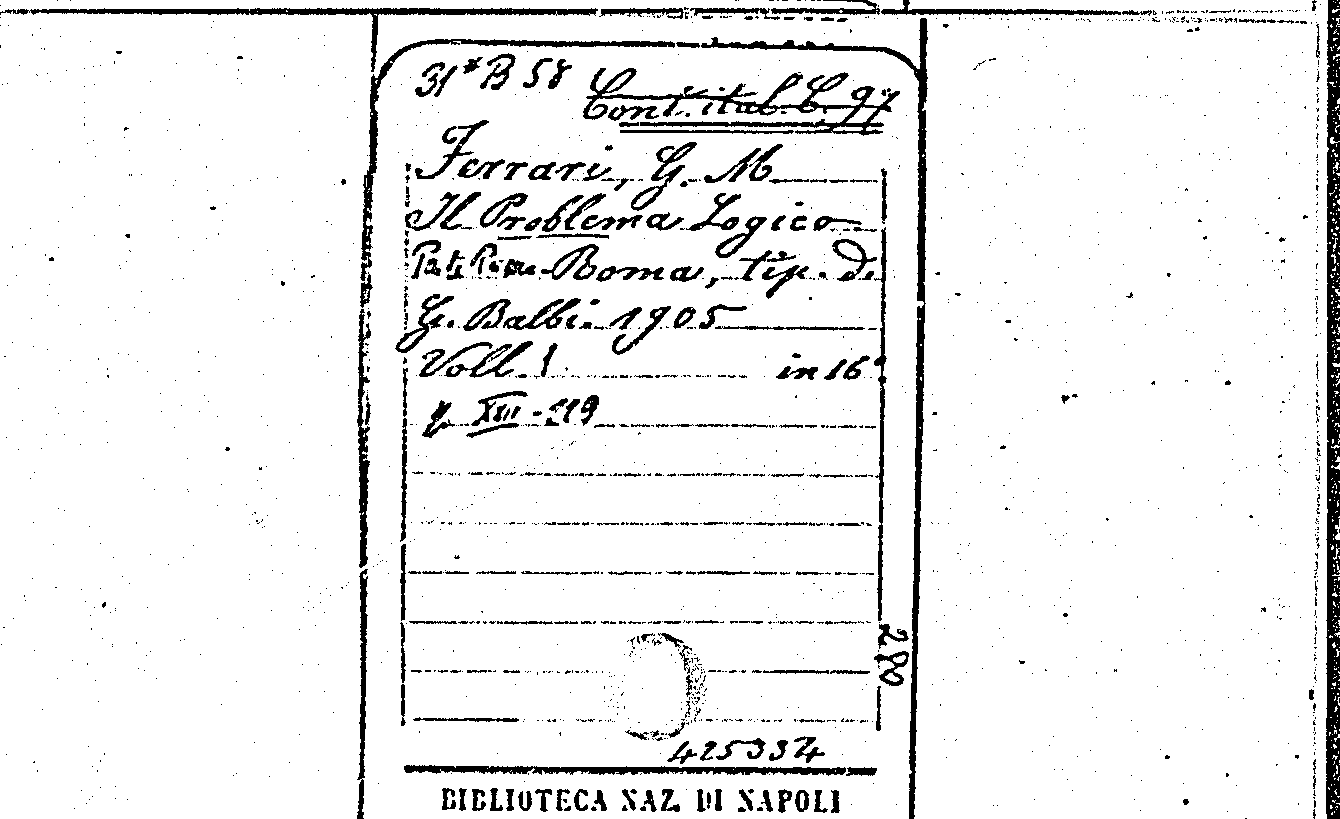 31* B 58
Cont. ital. C. 97
Ferrari, G. M
Il Problema Logico
Parte Prima - Roma, tip. di
G. Balbi. 1905
Voll. 1 in 16°
p. XIII-119
280
425334
BIBLIOTECA NAZ. DI NAPOLI